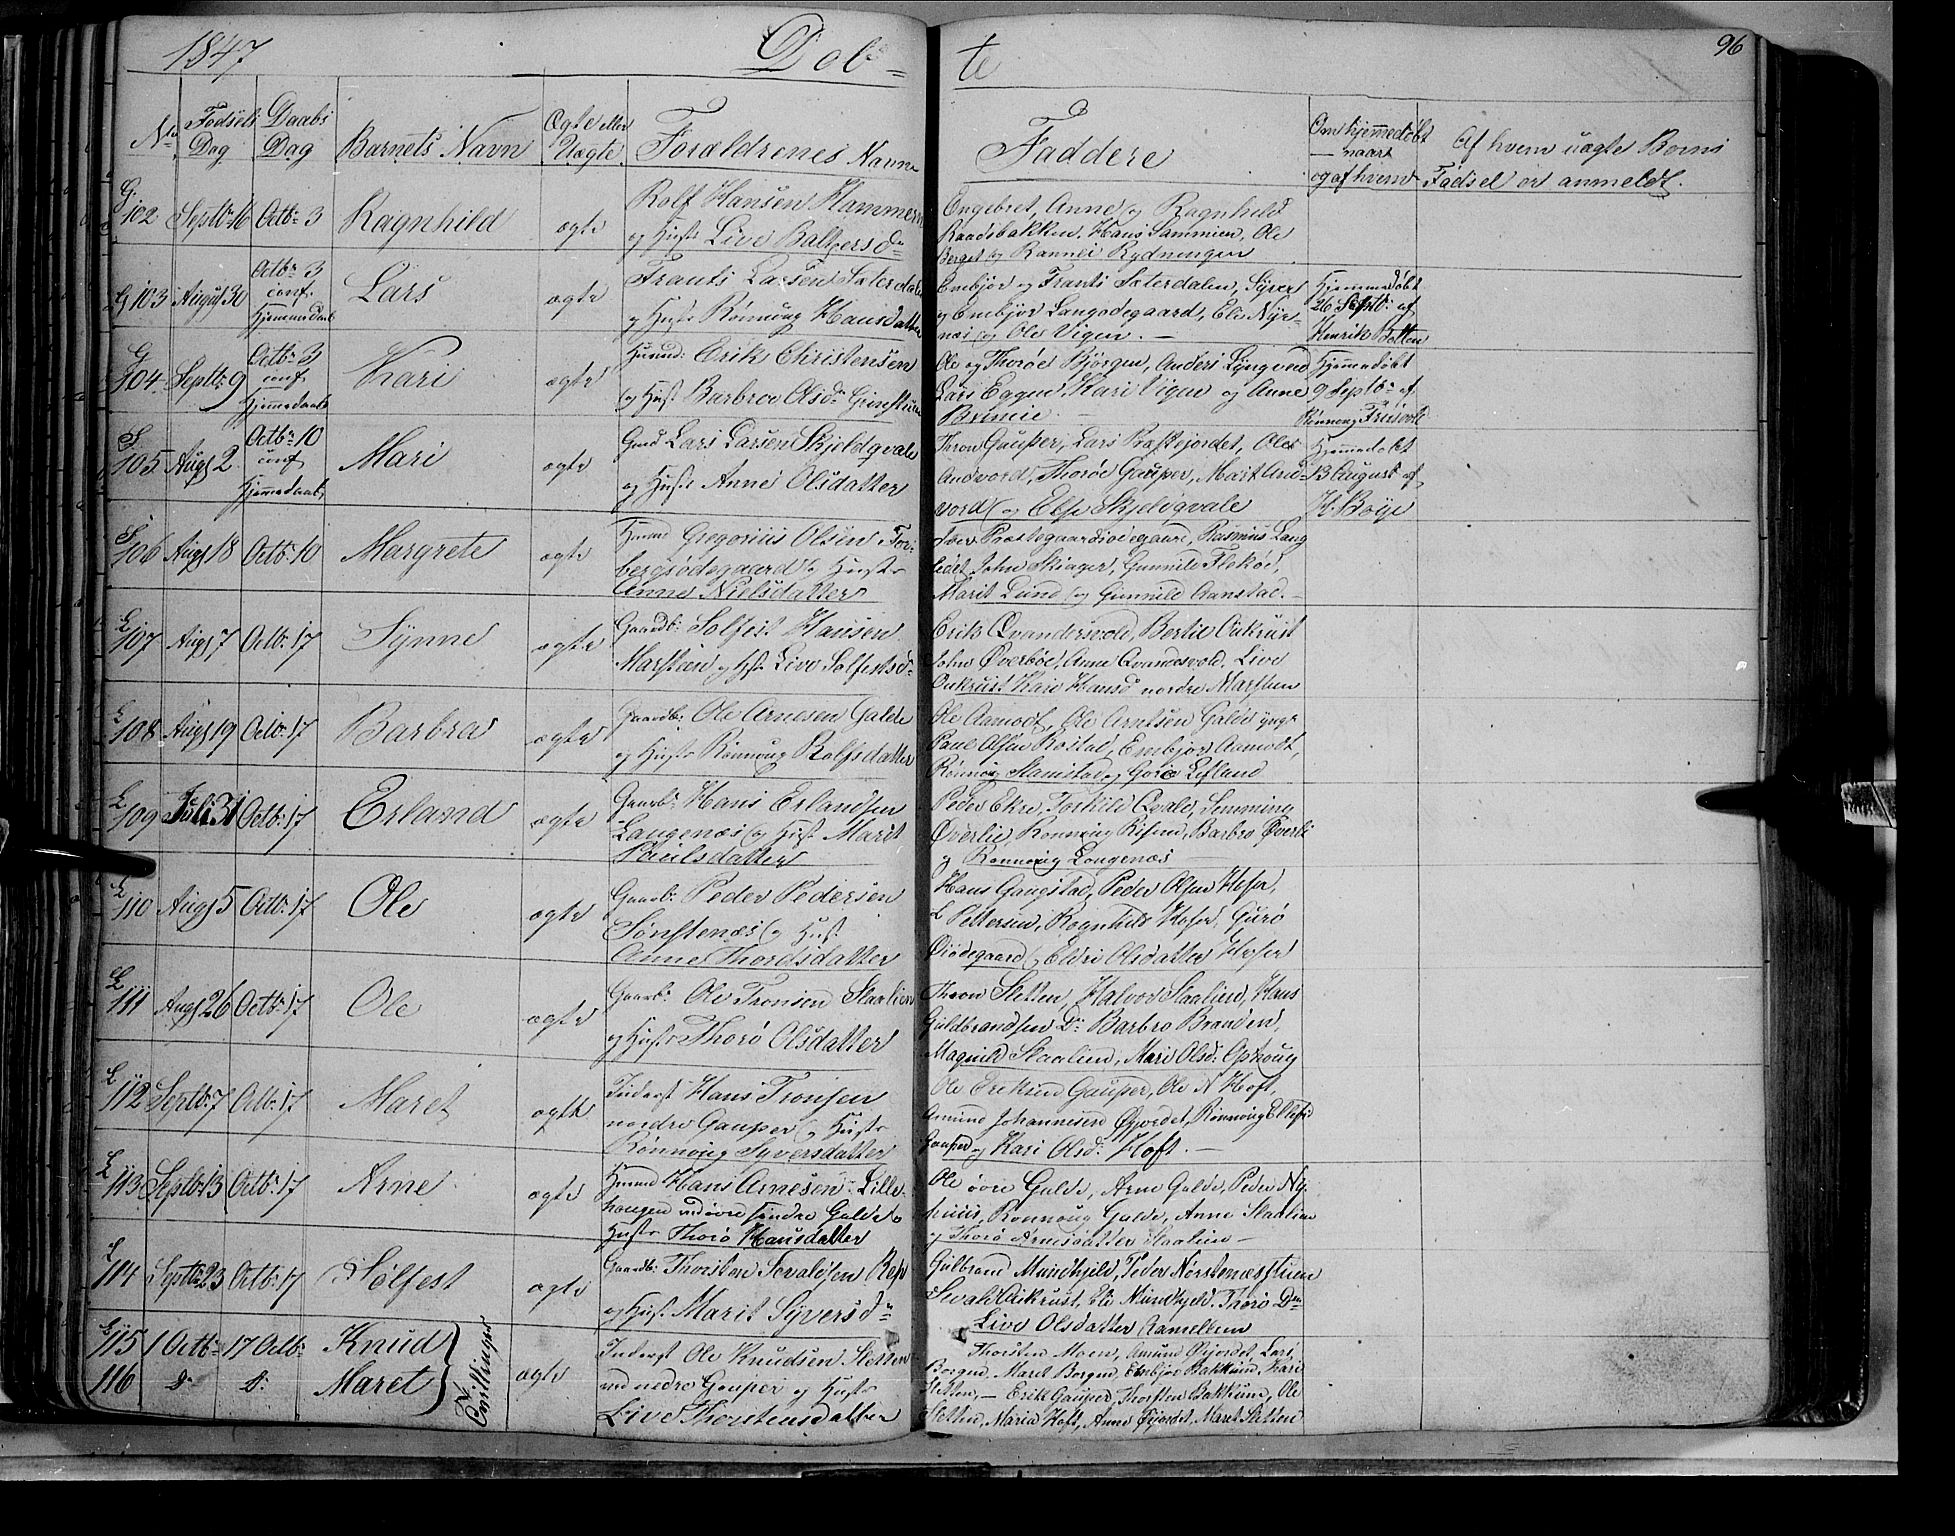 1847 Døb= te 96
No Fødsels Dag Daabs Dag Barnets Navn Ægte eller Uægte Forældrenes Navne Faddere Om hjemmedøbt naar og af hvem Af hvem uægte Børns Fødsel er anmeldt.
G. 102 Septbr 16 Octbr 3 Ragnhild ægte Rolf Hansen Hammern
og Hustr Live Baltzersdr
Engebret, Anne og Ragnhild
Raadsbakken, Hans Sammien, Ole
Berget og Rannei Rydningen
G 103 August 30 Octbr 3 conf. Hjemmedaab Lars ægte Frants Larsen Sæterdalen
og Hustr Rønnoug Hansdatter
Embjør og Frants Sæterdalen, Syvert
og Embjør Langødegaard, Eli Nyr-
næs og Ole Vigen. —
Hjemmedøbt
26 Septbr af
Henrik Botten
G 104 Septbr 9 Octbr 3 conf. Hjemmedaab Kari ægte Husmd: Erik Christensen
og Hust Barbroe Olsdr
Ole og Thorøe Bjørgen, Anders Lyngved
Lars Eggen, Kari Vigen og Anne
Brimie. —
Hjemmedøbt
9 Septbr af
Rønnoug
105 Augs 2 Octbr 10 conf Hjemmedaab Mari ægte Lars Larsen Skjeldqvale
og Hustr Anne Olsdatter
Thron Gauper, Lars Præstejordet, Ole
Andvord, Thorøe Gauper, Marit And-
vord og Else Skjelqvale
Hjemmedøbt
13 August af
H. Boye
106 Augs 18 Octbr 10 Margrete ægte Husmd Gregorius Olsen For-
bergsødegaard og Hustr
Anne Nielsdatter
Iver Præstegaardsødegaard, Rasmus Lang
John Skiager, Gunnild Flekøe,
Marit Lund og Gunnild Aanstad. —
L 107 Augs 7 Octbr 17 Synne ægte Gaardb: Solfest Hansen
Marstein og Hst Live Solfestsdr
Erik Qvandersvold, Bertie Aukrust
John Øverbøe, Anne Qvandesvold, Live
Aukrust Kari Hansd nordre Marstein
L 108 Augs 19 Octbr 17 Barbra ægte Gaardb: Ole Arnesen Galde
og Hustr Rønnoug Rolfsdatter
Ole Aamodt, Ole Arnesen Galde yngr
Paul Olsen Rostad, Embjør Aamodt,
Rønnoug Stamstad og Goro Lefland
L 109 Juli 31 Octbr 17 Erland ægte Gaardb: Hans Erlandsen
Langenæs og Hust Marit
Paulsdatter
Peder Ekre, Torkild Qvale, Semming
Øverlie, Rønnoug Risen, Barbro Øverli
og Rønnoug Langenæs —
L 110 Augs 5 Octbr 17 Ole ægte Gaardb: Peder Pedersen
Sønstenæs og Hust
Anne Thordsdatter
Hans Gangstad, Peder Olsen Hoser,
L Pettersen, Ragnhild Hoser, Guro
Øiødegaard og Eldri Olsdatter Hoser
L 111 Augs 26 Octbr 17 Ole ægte Gaardb: Ole Tronsen Slaalien
og Hustr Thorø Olsdatter
Thron Sletten, Halvor Slaalien, Hans
Guldbrandsen Do Barbro Branden,
Magnild Slaalien, Mari Olsd:
L 112 Septbr 7 Octbr 17 Maret ægte Inderst Hans Tronsen
nordre Gauper og Hustr
Rønnoug Syversdatter
Ole Eriksen Gauper, Ole N Hoft,
Amund Johannesen Øyjordet, Rønnoug
Gauper og Kari Olsd: Hoft. —
L 113 Septbr 13 Octbr 17 Arne ægte Husmd Hans Arnesen Lille-
haugen ved øvre søndre Galde og
Hustr Thorø Hansdatter
Ole øvre Galde, Arne Galde, Peder Ny-
huus, Rønnoug Galde, Anne Slaalien
og Thorø Arnesdatter Slaalien —
L 114 Septbr 23 Octbr 17 Sølfest ægte Gaardb: Thorsten Sevaldsen Rep
og Hust Marit Syversdr
Gulbrand Mundhjeld, Peder Nørstenæsstuen
Sivald Aukrust, Eli Mundhjeld, Thorø Do
Live Olsdatter Ramellem
L 115 1 Octbr 17 Octbr Knud
116 do do Maret Tvillinger ægte Inderst Ole Knudsen Sletten
ved nedre Gauper og Hustr
Live Thorstensdatter
Thorsten Moen, Amund Øijordet, Lars
Borgen, Maret Borgen, Embjør Bakkum, Kari
Sletten, — Erik Gauper, Thorsten Bakkum, Ole
Sletten, Maria Hoft, Anne Øijordet, Maret Sletten